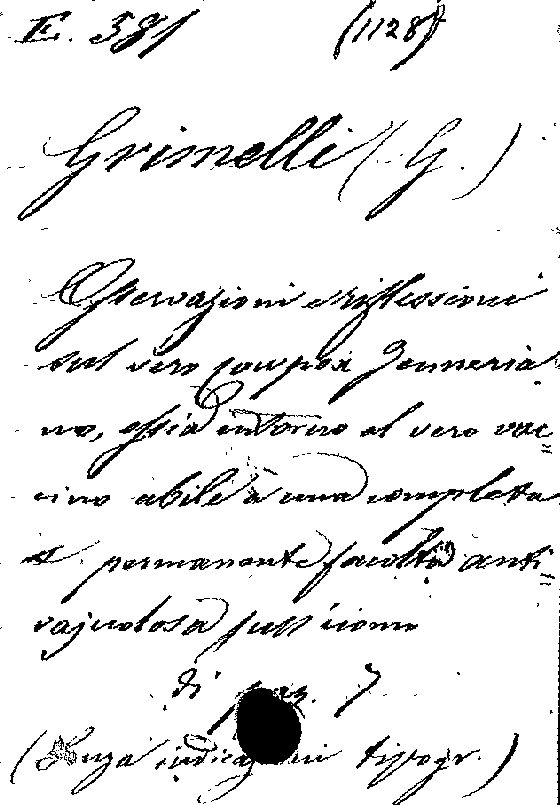 E. 381 (1128)
Grimelli (G.)
Osservazioni e riflessioni
sul vero cowpox Jenneria
no, ossia intorno al vero vac
cino abile a una completa
e permanente facoltà anti
vajuolosa sull'uomo
di pag. 7
(Senza indicazioni tipogr.)